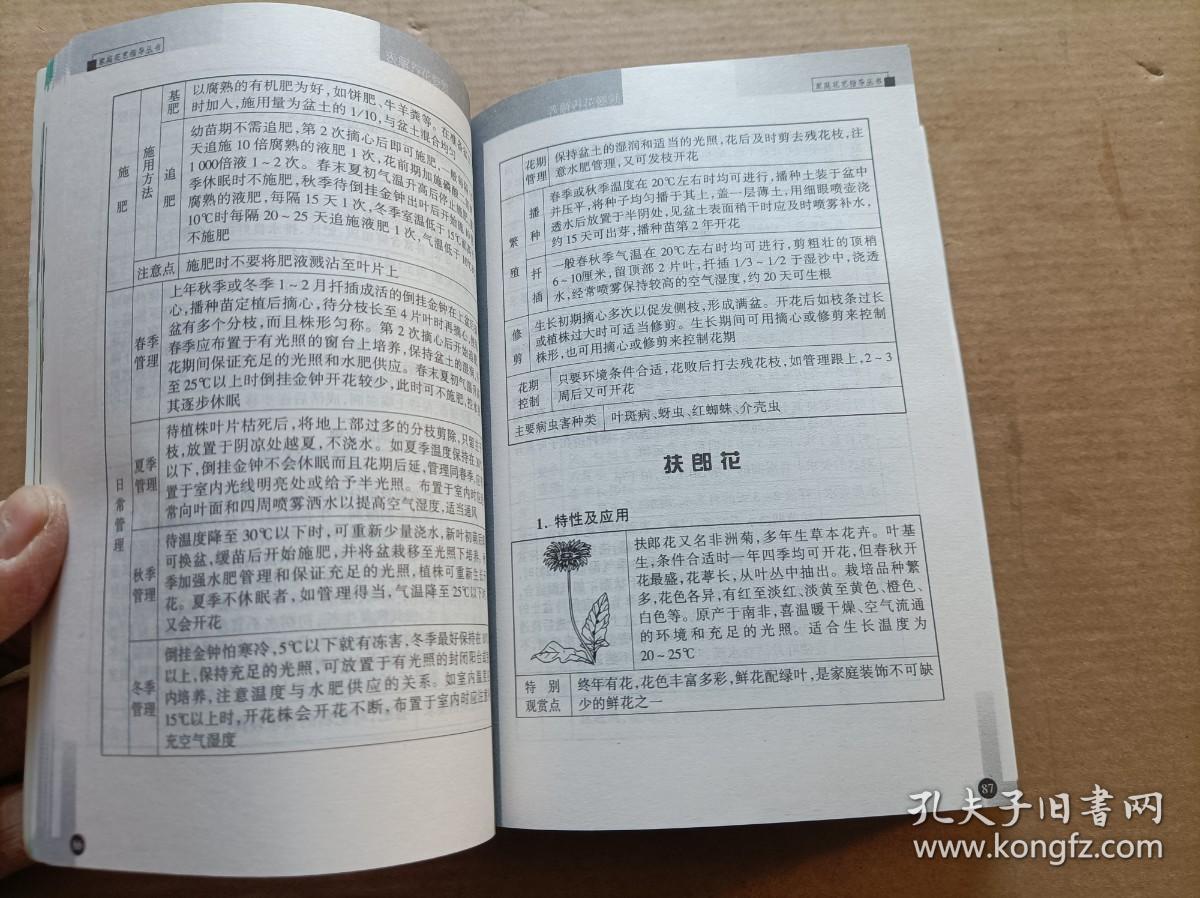 家庭花艺指导丛书
施肥
施用方法
基肥
以腐熟的有机肥为好,如饼肥、牛羊粪等。在准备盆
时加入,施用量为盆土的1/10,与盆土混合均匀
追肥
幼苗期不需追肥,第2次摘心后即可施肥,一般每隔
天追施10倍腐熟的液肥1次,花前期加施磷酸二
1000倍液1~2次。春末夏初气温升高后停止施肥
季休眠时不施肥,秋季待倒挂金钟出叶后开始施
腐熟的液肥,每隔15天1次,冬季室温低于15℃
10℃时每隔20~25天追施液肥1次,气温低于10℃
不施肥
注意点
施肥时不要将肥液溅沾至叶片上
日常管理
春季管理
上年秋季或冬季1~2月扦插成活的倒挂金钟在上盆
心,播种苗定植后摘心,待分枝长至4片叶时再摘心,
盆有多个分枝,而且株形匀称。第2次摘心后开始
春季应布置于有光照的窗台上培养,保持盆土的湿润,
花期间保证充足的光照和水肥供应。春末夏初气温
至25℃以上时倒挂金钟开花较少,此时可不施肥,控
其逐步休眠
夏季管理
待植株叶片枯死后,将地上部过多的分枝剪除,只留
枝,放置于阴凉处越夏,不浇水。如夏季温度保持在
以下,倒挂金钟不会休眠而且花期后延,管理同春季,
置于室内光线明亮处或给予半光照。布置于室内时应
常向叶面和四周喷雾洒水以提高空气湿度,适当通风
秋季管理
待温度降至30℃以下时,可重新少量浇水,新叶初萌后
可换盆,缓苗后开始施肥,并将盆栽移至光照下培养,
季加强水肥管理和保证充足的光照,植株可重新
花。夏季不休眠者,如管理得当,气温降至25℃以下时
又会开花
冬季管理
倒挂金钟怕寒冷,5℃以下就有冻害,冬季最好保持在
以上,保持充足的光照,可放置于有光照的封闭阳台或
内培养,注意温度与水肥供应的关系。如室内温度
15℃以上时,开花株会开花不断,布置于室内时应注意
充空气湿度
家庭花艺指导丛书
花期管理
保持盆土的湿润和适当的光照,花后及时剪去残花枝,注
意水肥管理,又可发枝开花
繁殖
播种
春季或秋季温度在20℃左右时均可进行,播种土装于盆中
并压平,将种子均匀播于其上,盖一层薄土,用细眼喷壶浇
透水后放置于半阴处,见盆土表面稍干时应及时喷雾补水,
约15天可出芽,播种苗第2年开花
扦插
一般春秋季气温在20℃左右时均可进行,剪粗壮的顶梢
6~10厘米,留顶部2片叶,扦插1/3~1/2于湿沙中,浇透
水,经常喷雾保持较高的空气湿度,约20天可生根
修剪
生长初期摘心多次以促发侧枝,形成满盆。开花后如枝条过长
或植株过大时可适当修剪。生长期间可用摘心或修剪来控制
株形,也可用摘心或修剪来控制花期
花期控制
只要环境条件合适,花败后打去残花枝,如管理跟上,2~3
周后又可开花
主要病虫害种类
叶斑病、蚜虫、红蜘蛛、介壳虫
扶郎花
1. 特性及应用
扶郎花又名非洲菊,多年生草本花卉。叶基
生,条件合适时一年四季均可开花,但春秋开
花最盛,花葶长,从叶丛中抽出。栽培品种繁
多,花色各异,有红至淡红、淡黄至黄色、橙色、
白色等。原产于南非,喜温暖干燥、空气流通
的环境和充足的光照。适合生长温度为
20~25℃
特别观赏点
终年有花,花色丰富多彩,鲜花配绿叶,是家庭装饰不可缺
少的鲜花之一
87
孔夫子旧书网
www.kongfz.com